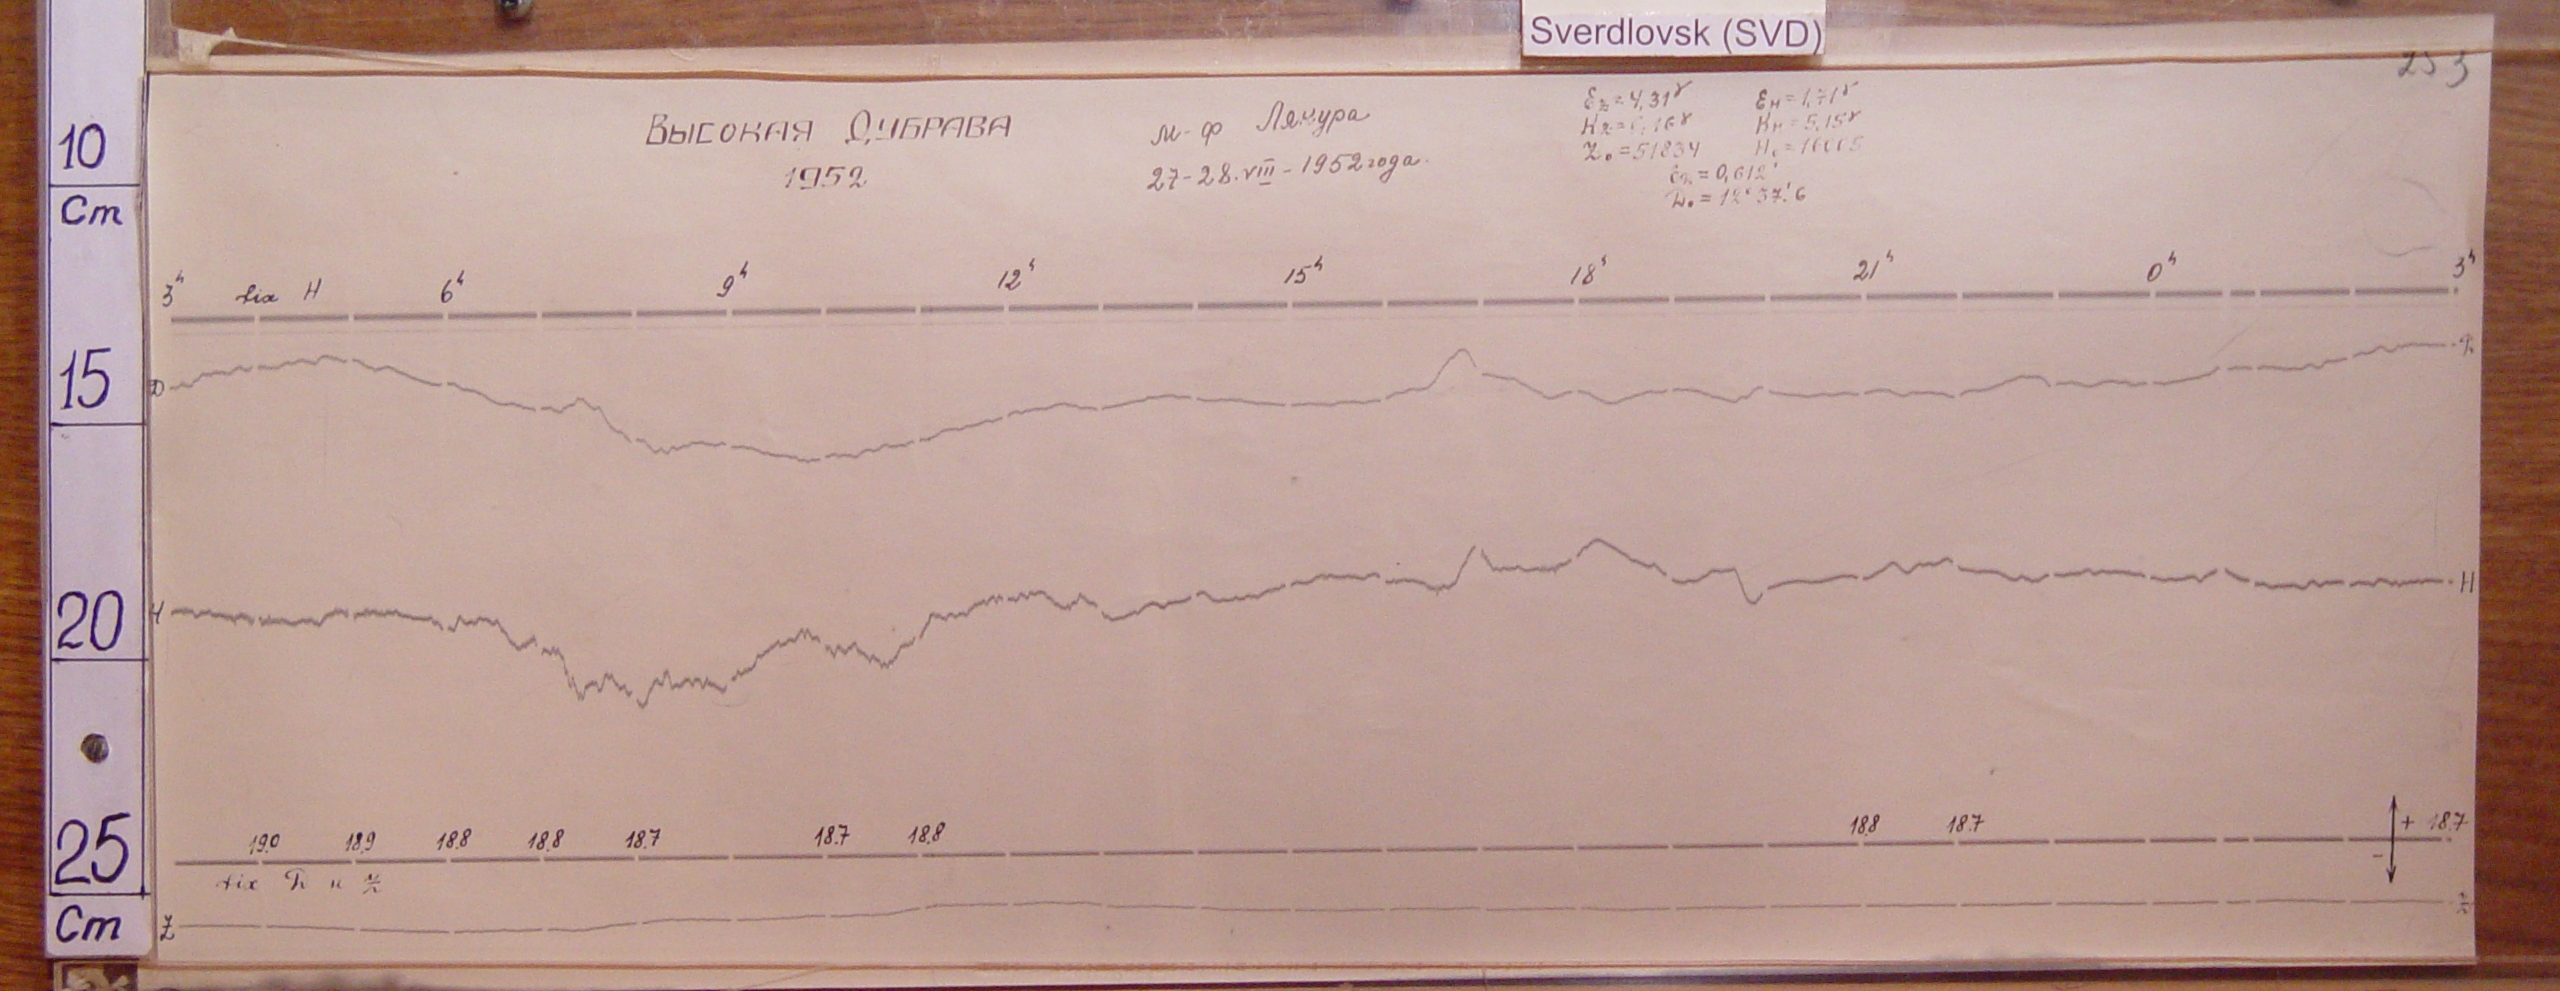 Sverdlovsk (SVD)
253
10
Cm
15
20
25
Cm
ВЫСОКАЯ ДУБРАВА
1952
м-ф Лякура
27-28.VIII-1952 года.
Ez=4,31γ EH=1,71γ
KH=5,15γ
Z₀=51834
E𝒟=0,612'
D₀=12°37'.6
3ʰ fix H 6ʰ 9ʰ 12ʰ 15ʰ 18ʰ 21ʰ 0ʰ 3ʰ
D D
H H
19.0 18.9 18.8 18.8 18.7 18.7 18.8 18.8 18.7 + 18.7
-
fix D и Z
Z Z